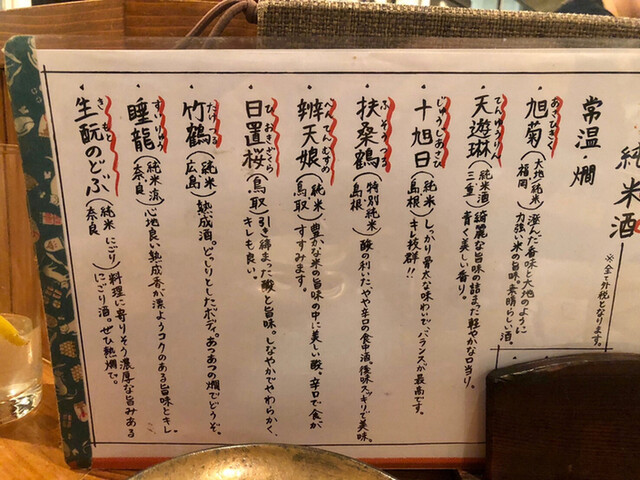 純米酒
※全力外税となります。
常温・燗
・旭菊
あさひきく
(大地・純米
福岡)
澄んだ香味と大地のように
力強い米の旨味。素晴らしい酒。
・天遊琳
てんゆうりん
(純米酒
三重)
綺麗な旨味の詰まった軽やかな口当り。
青く美しい香り。
・十旭日
じゅうじあさひ
(純米
島根)
しっかり骨太な味わいで、バランスが最高です。
キレ抜群!!
・扶桑鶴
ふそうづる
(特別純米
島根)
酸の利いた、やや辛口の食中酒。後味スッキリで美味。
・辨天娘
べんてんむすめ
(純米
鳥取)
豊かな米の旨味の中に美しい酸。辛口で食が
すすみます。
・日置桜
ひおきざくら
(鳥取)
引き締まった酸と旨味。しなやかでやわらかく、
キレも良い。
・竹鶴
たけつる
(純米
広島)
熟成酒。どっりとしたボディ。あつあつの燗でどうぞ。
・睡龍
すいりゅう
(純米
奈良)
心地良い熟成香が涼ようコクのある旨味とキレ。
・生酛のどぶ
きもと
(純米にごり
奈良)
料理に寄りそう濃厚な旨みある
にごり酒。ぜひ熱燗で。